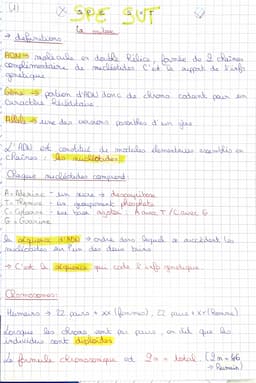 (1)
SPE SVT
→ définitions
ADN → molécule en double hélice, formée de 2 chaînes
complémentaire de nucléotides. C'est le support de l'info
génétique
Gène → portion d'ADN donc de chromo codant pour un
caractère héréditaire
Allèle → une des versions possibles d'un gène
L'ADN est constitué de molécules élémentaires assemblées en
chaînes : les nucléotides
Chaque nucléotides comprend :
A = Adénine - un sucre → désoxyribose
T = Thymine - un groupement phosphate
C = Cytosine - une base azotée : A avec T / C avec G
G = Guanine
la séquence d'ADN → ordre dans lequel se succèdent les
nucléotides sur l'un des deux brins
→ C'est la séquence qui code l'info génétique.
Chromosomes :
Humains → 22 pairs + XX (femme), 22 pairs + XY (homme)
Lorsque les chromo sont par paires, on dit que les
individus sont diploïdes
La formule chromosomique est 2n = total. (2n = 46
→ humain)